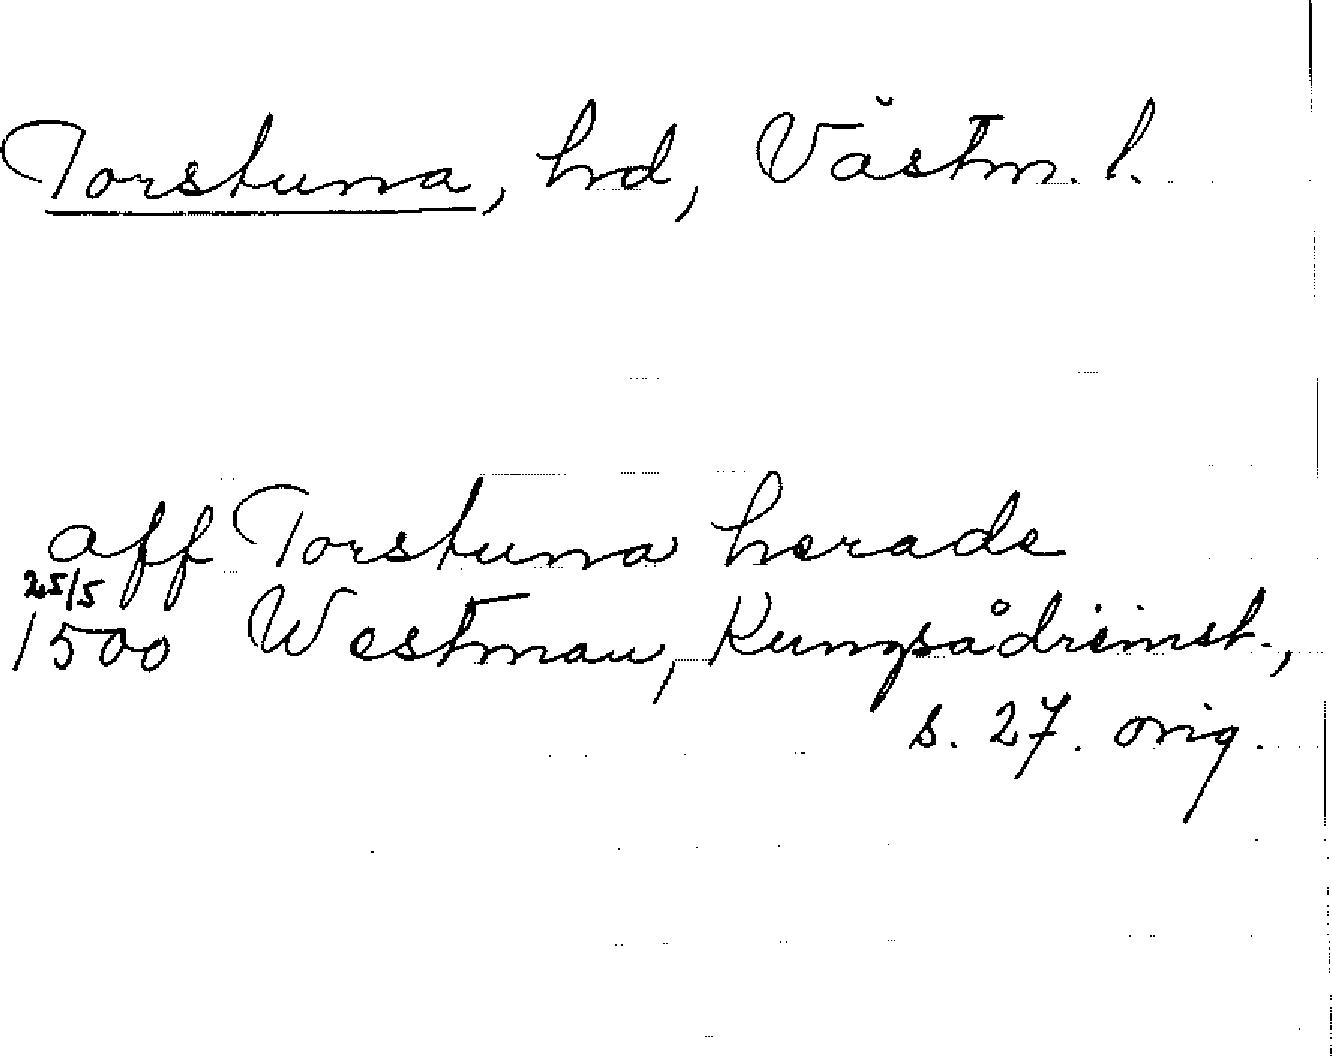 Torstuna, hd, Västm. l.
aff Torstuna herade
25/5
1500 Westman, Kungsådreinst.,
s. 27. orig.